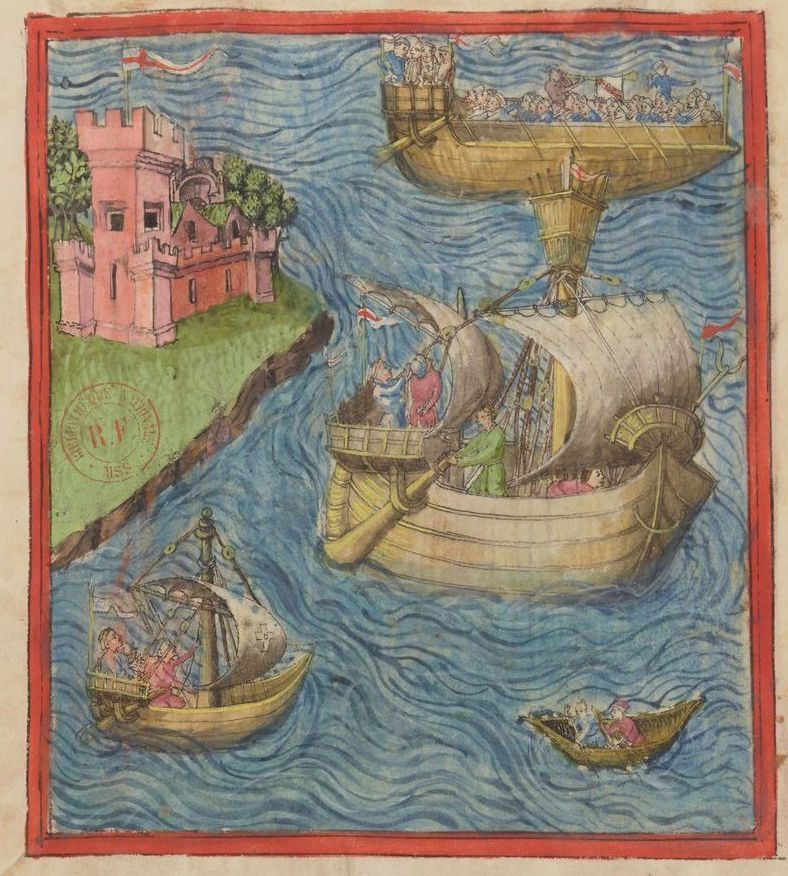 BIBLIOTHEQUE NATIONALE
R.F
MSS